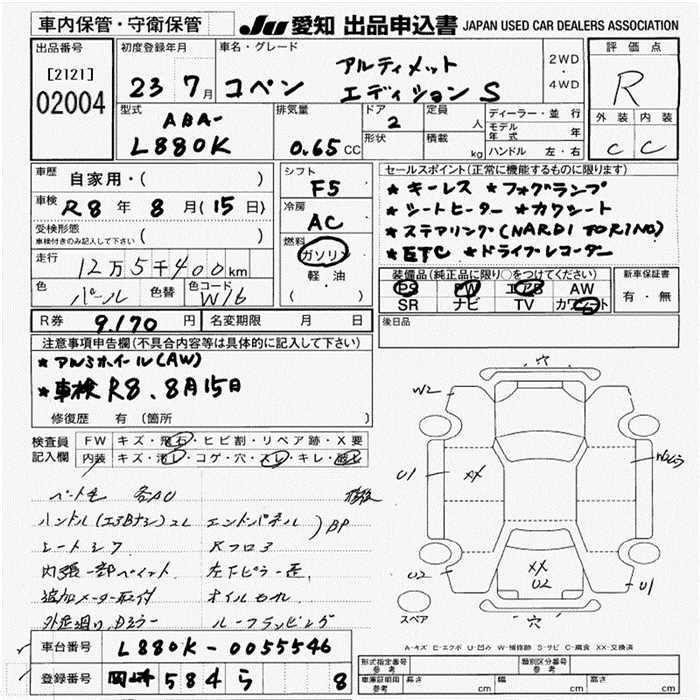 車内保管・守衛保管
JU 愛知 出品申込書 JAPAN USED CAR DEALERS ASSOCIATION
出品番号
[2121]
02004
初度登録年月
23 7月
車名・グレード
コペン アルティメット
エディション S
2WD
・
4WD
評価点
R
外装 内装
C C
型式
ABA-
L880K
排気量
0.65CC
ドア
2
定員
人
形状
積載
kg
ディーラー・並行
モデル年式 年
ハンドル 左・右
車歴 自家用・( )
車検 R8年 8月(15日)
受検形態
車検付きのみ記入して下さい ( )
走行 12万5千400km
色 パール 色替 色コード W16
シフト
F5
冷房
AC
燃料
ガソリン
軽・油
( )
セールスポイント(正常に機能するものに限ります)
★キーレス ★フォグランプ
★シートヒーター ★カワシート
★ステアリング(NARDI TORINO)
★ETC ★ドライブレコーダー
装備品(純正品に限り○をつけてください)
PS PW エアB AW
SR ナビ TV カワシート
新車保証書
有・無
R券 9,170円 名変期限 月 日
後日品
注意事項申告欄(不具合内容等は具体的に記入して下さい)
★アルミホイール(AW)
★車検 R8.8月15日
修復歴 有(箇所
検査員
記入欄
FW キズ・飛石・ヒビ割・リペア跡・X要
内装 キズ・汚レ・コゲ・穴・スレ・キレ・破レ
ハンドル(エアBナシ)スレ エンドパネル )BP
シートシワ
内張一部ペイント 左下ピラー歪
追加メーター取付 オイルモレ
ルーフランピング
穴
W2
U1
XX
U2
XX
U2
U1
穴
スペア
A-キズ E-エクボ U-凹み W-補修跡 S-サビ C-腐食 XX-交換済
車台番号 L880K-0055546
登録番号 岡崎 584 ら 8
形式指定番号
参考
類別区分番号
参考
車庫証明用
参考
長さ cm 幅 cm 高さ cm